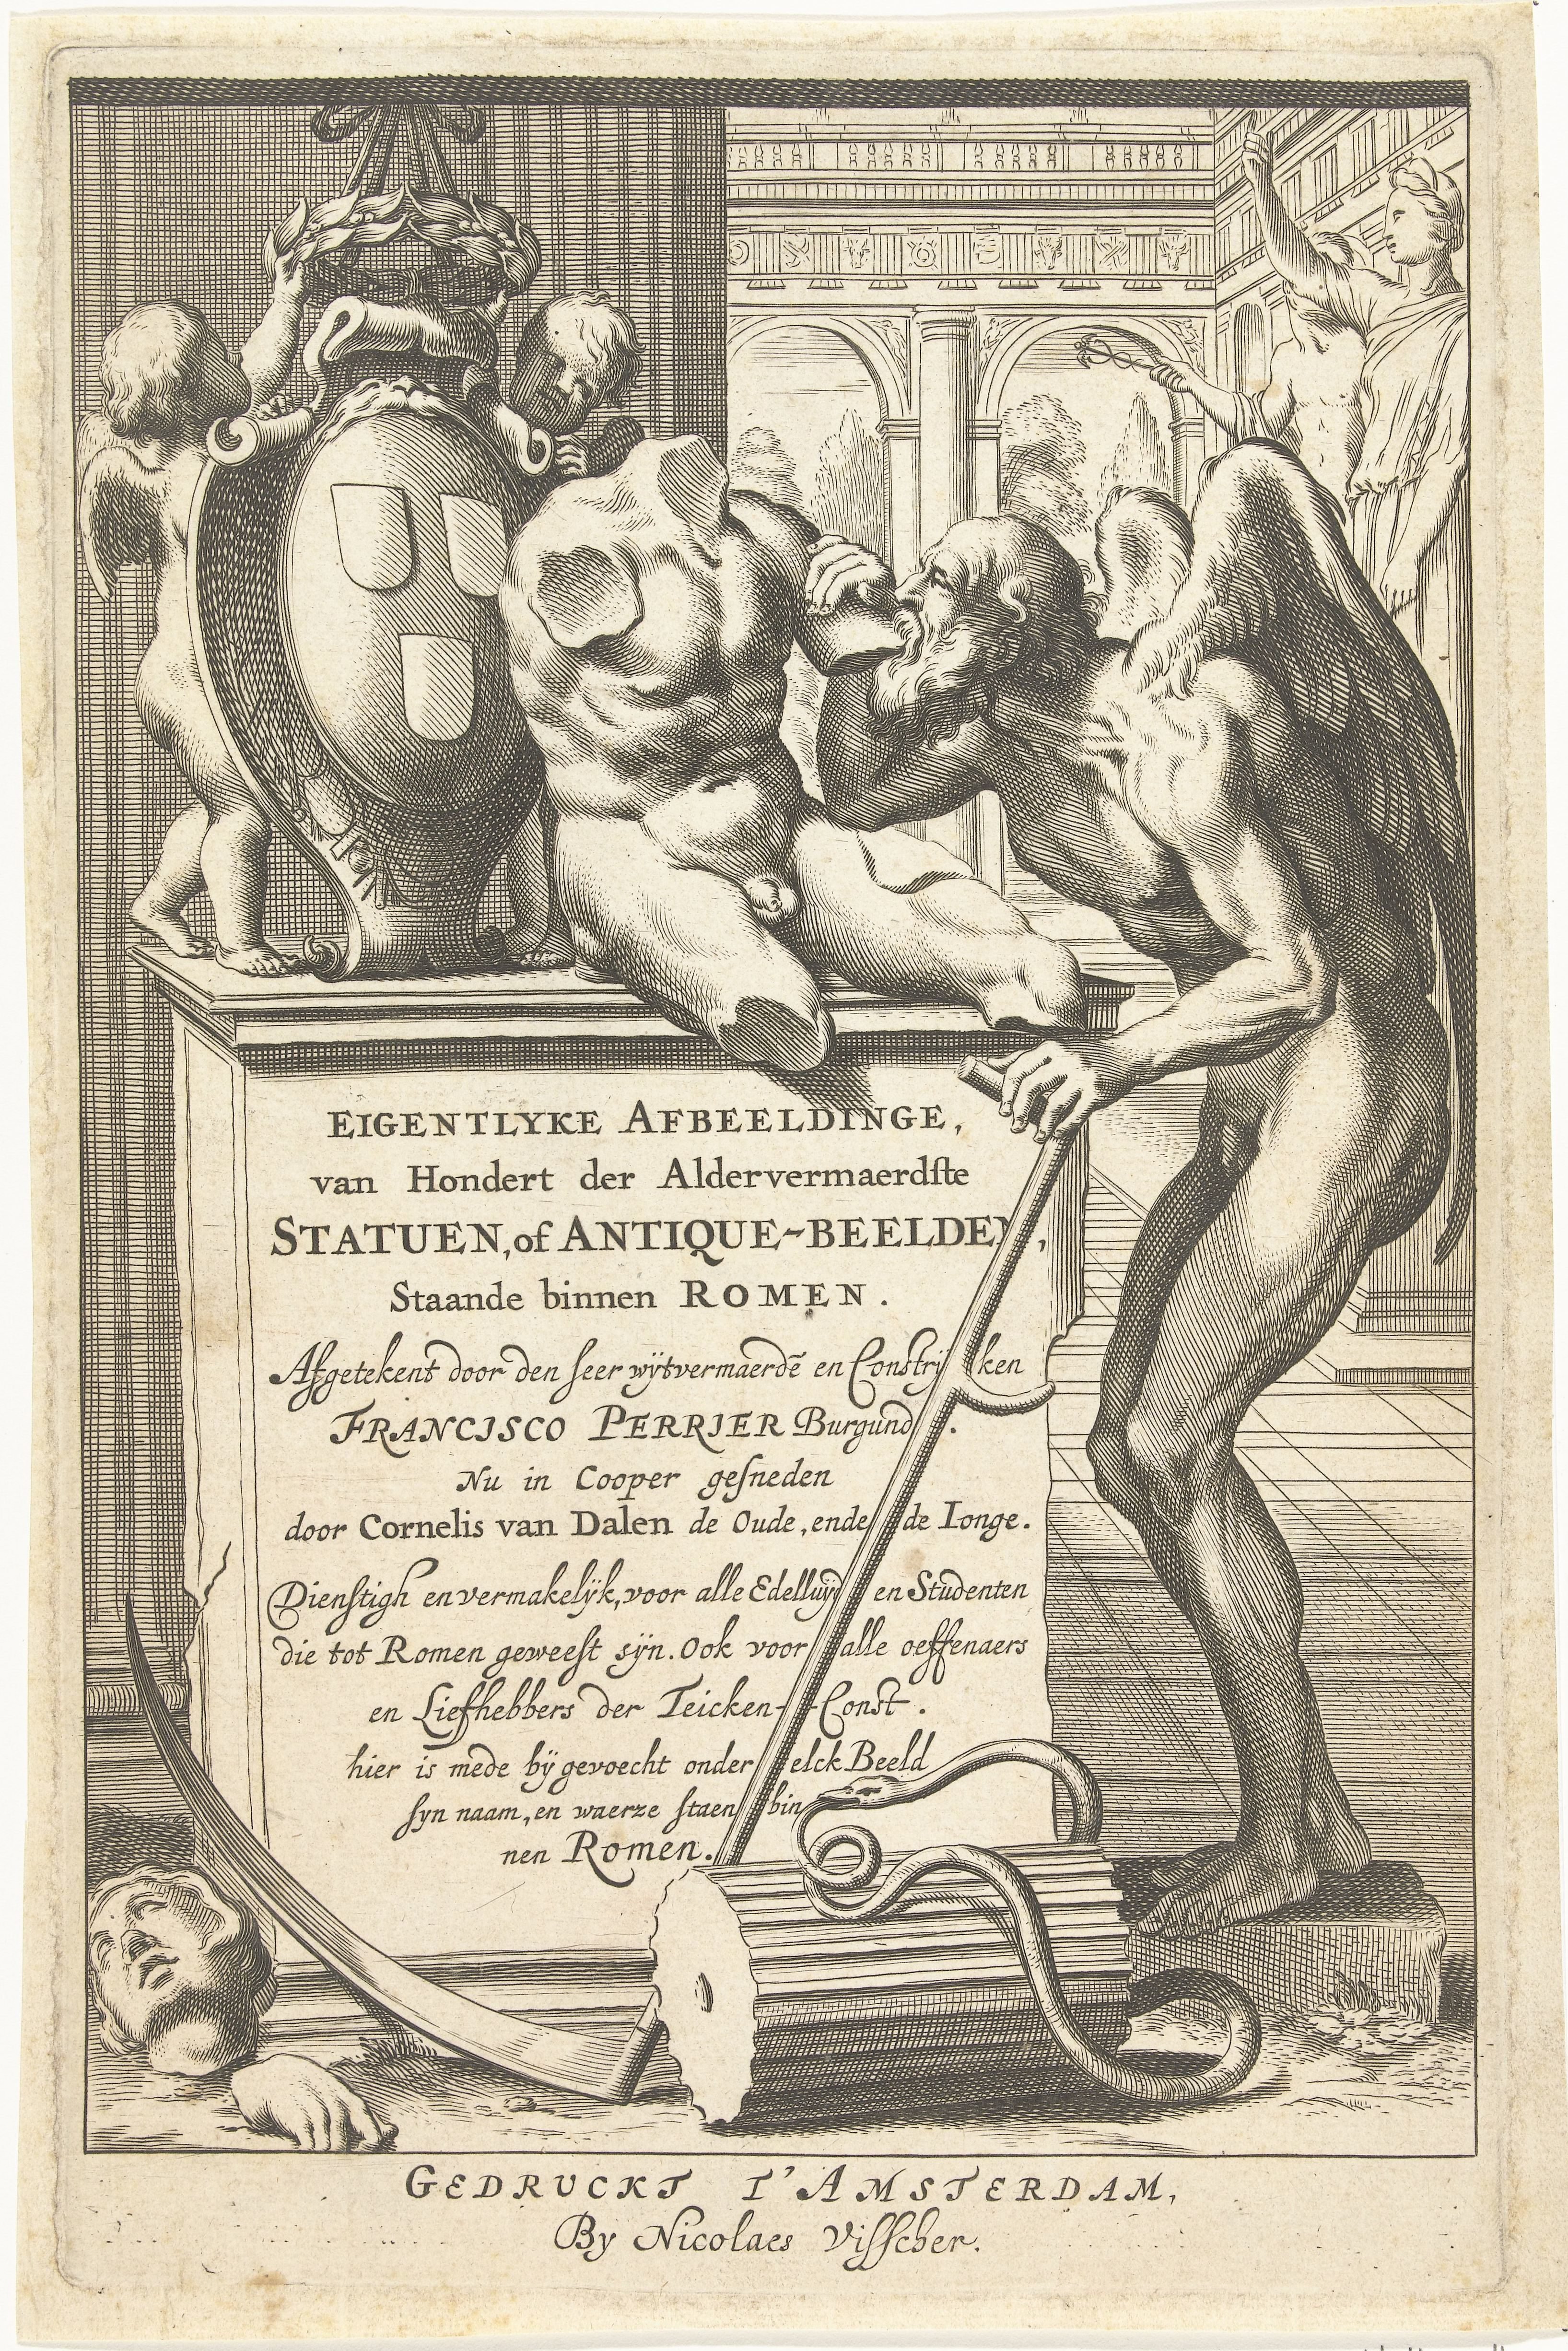 EIGENTLYKE AFBEELDINGE,
van Hondert der Aldervermaerdſte
STATUEN, of ANTIQUE-BEELDEN,
Staande binnen ROMEN.
Afgetekent door den ſeer wÿtvermaerdē en Constrijken
FRANCISCO PERRIER Burgund.
Nu in Cooper geſneden
door Cornelis van Dalen de Oude, ende de Ionge.
Dienſtigh en vermakelÿk, voor alle Edelluyd en Studenten
die tot Romen geweeſt sÿn. Ook voor alle oeffenaers
en Liefhebbers der Teicken-Const.
hier is mede bÿ gevoecht onder elck Beeld
ſyn naam, en waerze ſtaen bin
nen Romen.
GEDRUCKT T'AMSTERDAM,
By Nicolaes Viſſcher.